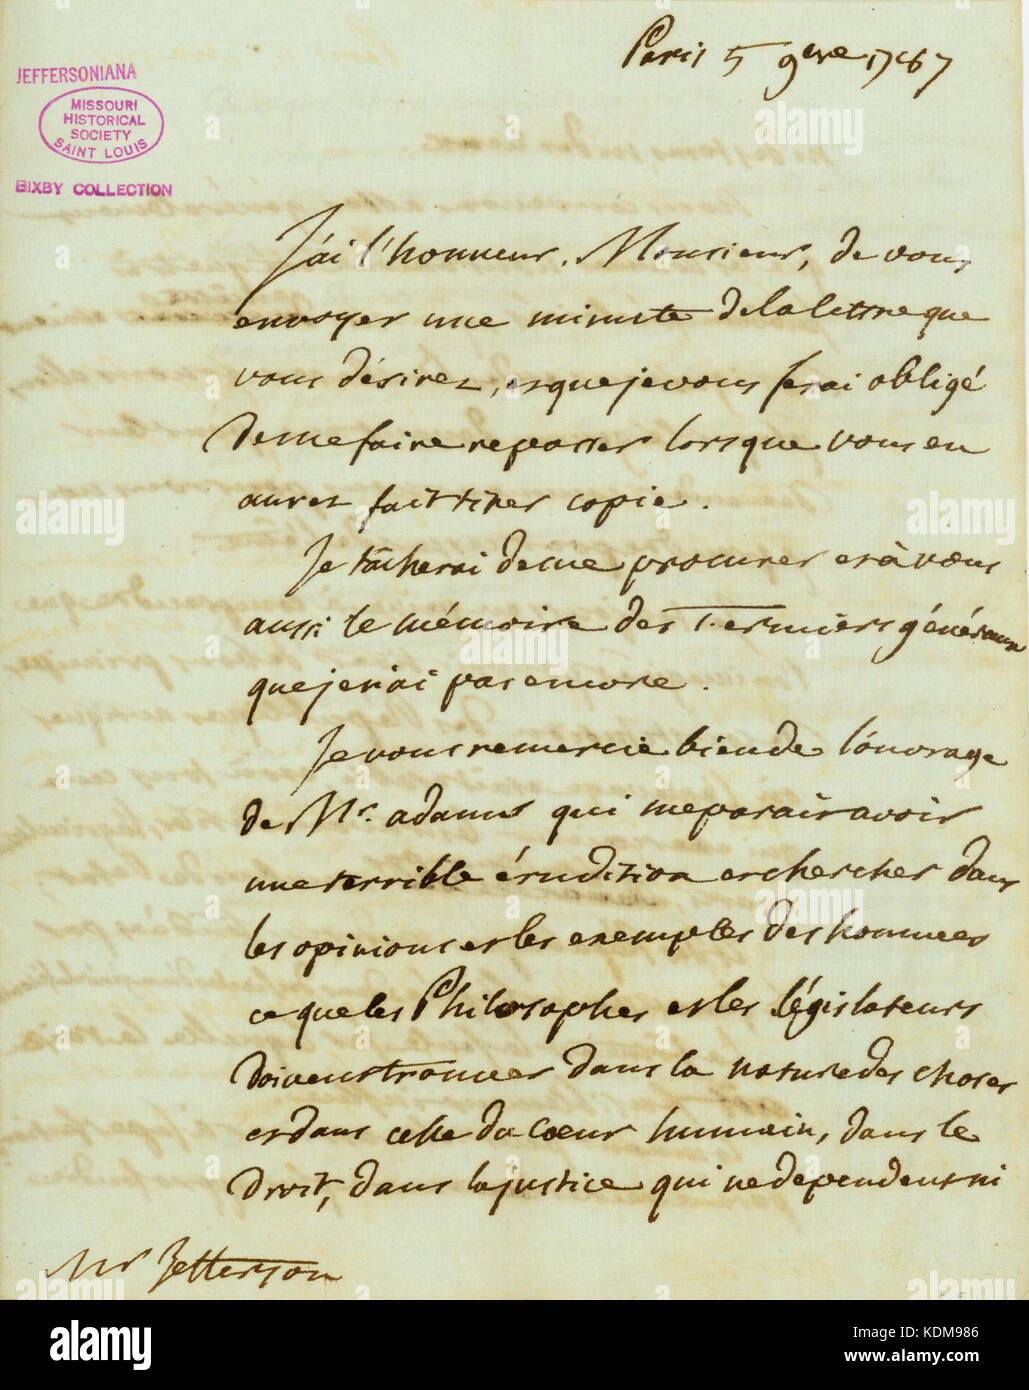 Paris 5 9bre 1787
JEFFERSONIANA
MISSOURI
HISTORICAL
SOCIETY
SAINT LOUIS
BIXBY COLLECTION
J'ai l'honneur, Monsieur, de vous
envoyer une minute de la lettre que
vous désirez, et que je vous serai obligé
de me faire repasser lorsque vous en
aurez fait tirer copie.
Je tâcherai de me procurer et à vous
aussi le mémoire des Fermiers généraux
que je n'ai pas encore.
Je vous remercie bien de l'ouvrage
de Mr. adams qui me parait avoir
une terrible érudition et chercher dans
les opinions et les exemples des hommes
ce que les Philosophes et les législateurs
doivent trouver dans la nature des choses
et dans celle du cœur humain, dans le
Droit, dans la justice qui ne dependent ni
Mr Jefferson
alamy
alamy stock photo
KDM986
www.alamy.com